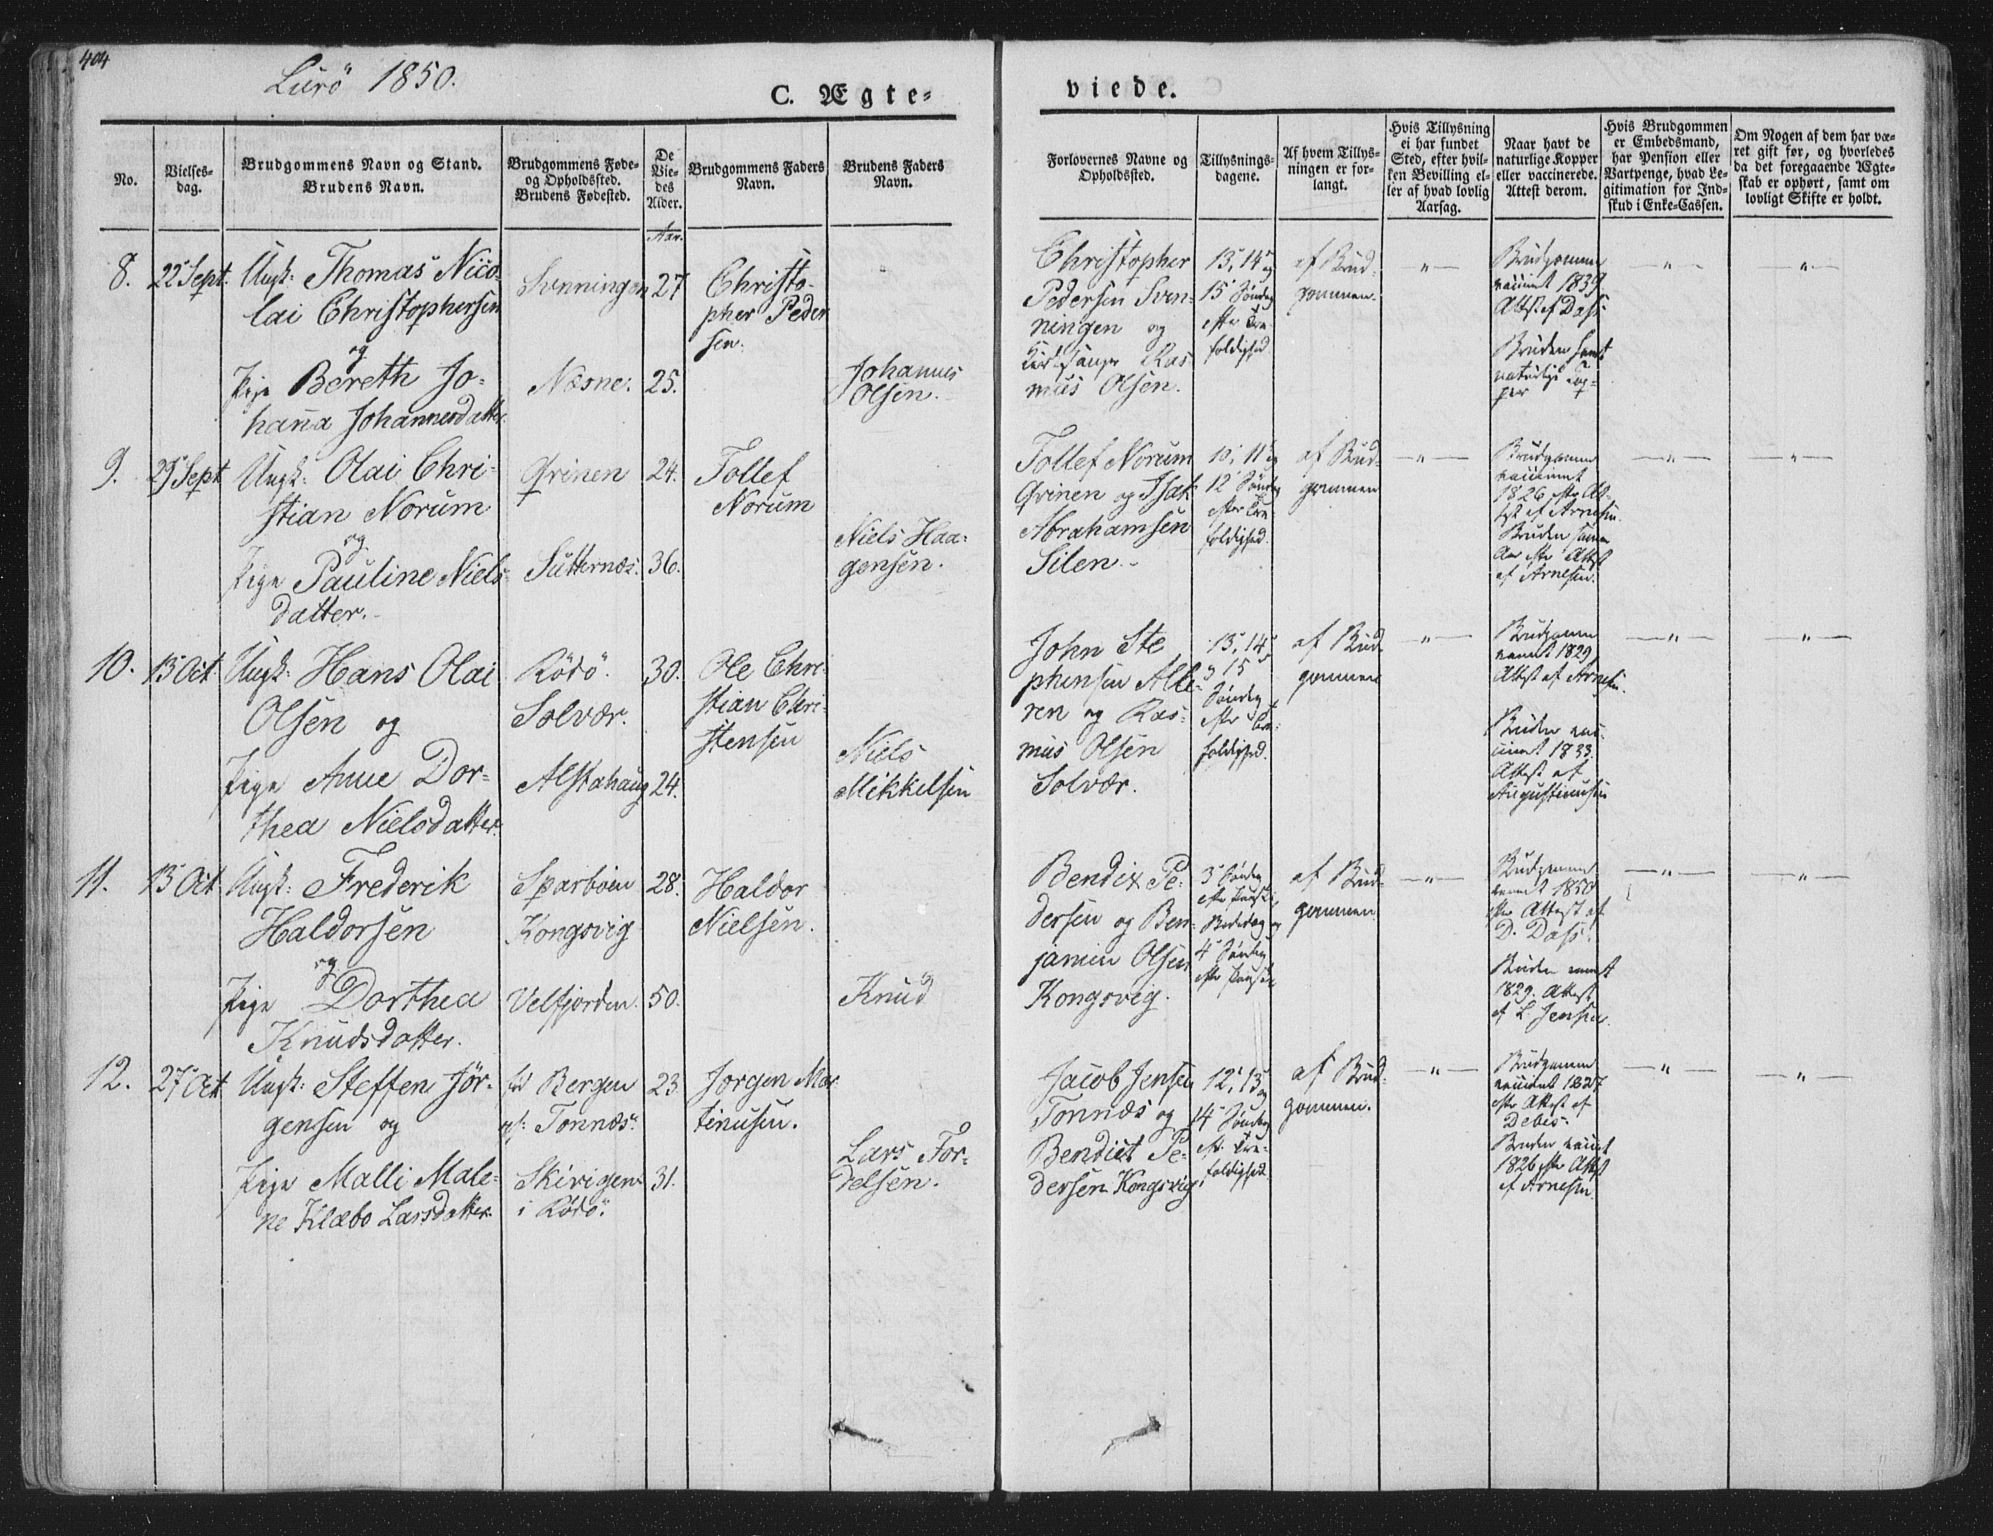 404
Lurö 1850.
C. Ægte=
viede.
No.
Vielses-
dag.
Brudgommens Navn og Stand.
Brudens Navn.
Brudgommens Føde-
og Opholdssted.
Brudens Fødested.
De
Vie-
des
Alder.
Brudgommens Faders
Navn.
Brudens Faders
Navn.
Forlovernes Navne og
Opholdssted.
Tillysnings-
dagene.
Af hvem Tillys-
ningen er for-
langt.
Hvis Tillysning
ei har fundet
Sted, efter hvil-
ken Bevilling el-
ler af hvad lovlig
Aarsag.
Naar havt de
naturlige Kopper
eller vaccinerede.
Attest derom.
Hvis Brudgommen
er Embedsmand,
har Pension eller
Vartpenge, hvad Le-
gitimation for Ind-
skud i Enke-Cassen.
Om Nogen af dem har væ-
ret gift før, og hvorledes
da det foregaaende Ægte-
skab er ophørt, samt om
lovligt Skifte er holdt.
Aar.
8.
22 Sept.
Ungk: Thomas Nico-
lai Christophersen
og
Pige Bereth Jo-
hanna Johannesdatter.
Svenningen
Næsne.
27
25.
Christo-
pher Peder
sen.
Johannes
Olsen.
Christopher
Pedersen Sven-
ningen og
Kirkesanger Ras
mus Olsen.
13, 14 og
15 Søndag
efter Tre-
foldighed
af Brud-
gommen.
— " —
Brudgommen
vaccinet 1839
Attest af Dass
Bruden havt
naturlige Kop-
per
— " —
— " —
9.
29 Sept
Ungk: Olai Chri-
stian Norum
og
Pige Pauline Niels
datter.
Qvinen
Sutternæs.
24.
36.
Tollef
Norum
Niels Haa-
gensen.
Tollef Norum
Qvinen og Isak
Abrahamsen
Silen.
10, 11 og
12 Søndag
efter Tre-
foldighed.
af Brud-
gommen
— " —
Brudgommen
vaccinet
1826 efter At-
test af Arnesen.
Bruden samme
Aar efter Attest
af Arnesen.
— " —
— " —
10.
13 Oct
Ungk: Hans Olai
Olsen og
Pige Anne Dor-
thea Nielsdatter.
Rödö.
Solvær.
Alstahaug
30.
24.
Ole Chri-
stian Chri-
stensen
Niels
Mikkelsen
John Ste
phensen Alle-
ren og Ras-
mus Olsen
Solvær.
13, 14
og 15
Søndag
efter Tre-
foldighed.
af Brud
gommen
— " —
Brudgommen
vaccinet 1829
Attest af Arnesen.
Bruden vac-
cinet 1833.
Attest af
Augustinussen
— " —
— " —
11.
13 Oct
Ungk: Frederik
Haldorsen
og
Pige Dorthea
Knudsdatter.
Sparboen
Kongsvig
Velfjorden.
28.
50.
Haldor
Nielsen.
Knud
Bendix Pe-
dersen og Ben-
jamin Olsen
Kongsvig.
3 Søndag
efter
Bededag og
4 Søndag
efter
af Brud-
gommen
— " —
Brudgommen
vaccinet 1850
efter Attest af
D. Dass.
Bruden vaccinet
1829. Attest
af L Jensen.
— " —
— " —
12.
27 Oct
Ungk: Steffen Jör-
gensen og
Pige Malli Male-
ne Klæbo Larsdatter.
Bergen
Tonnæs.
Skivigen
i Rödö.
23.
31.
Jorgen Mar
tinusen.
Lars For-
delsen.
Jacob Jensen
Tonnæs og
Bendict Pe-
dersen Kongsvig.
12, 13 og
14 Søndag
eft. Tre-
foldighed.
af Brud-
gommen.
— " —
Brudgommen
vaccinet 1827
efter Attest af
Debes.
Bruden vaccinet
1826 efter Attest
af Arnesen.
— " —
— " —